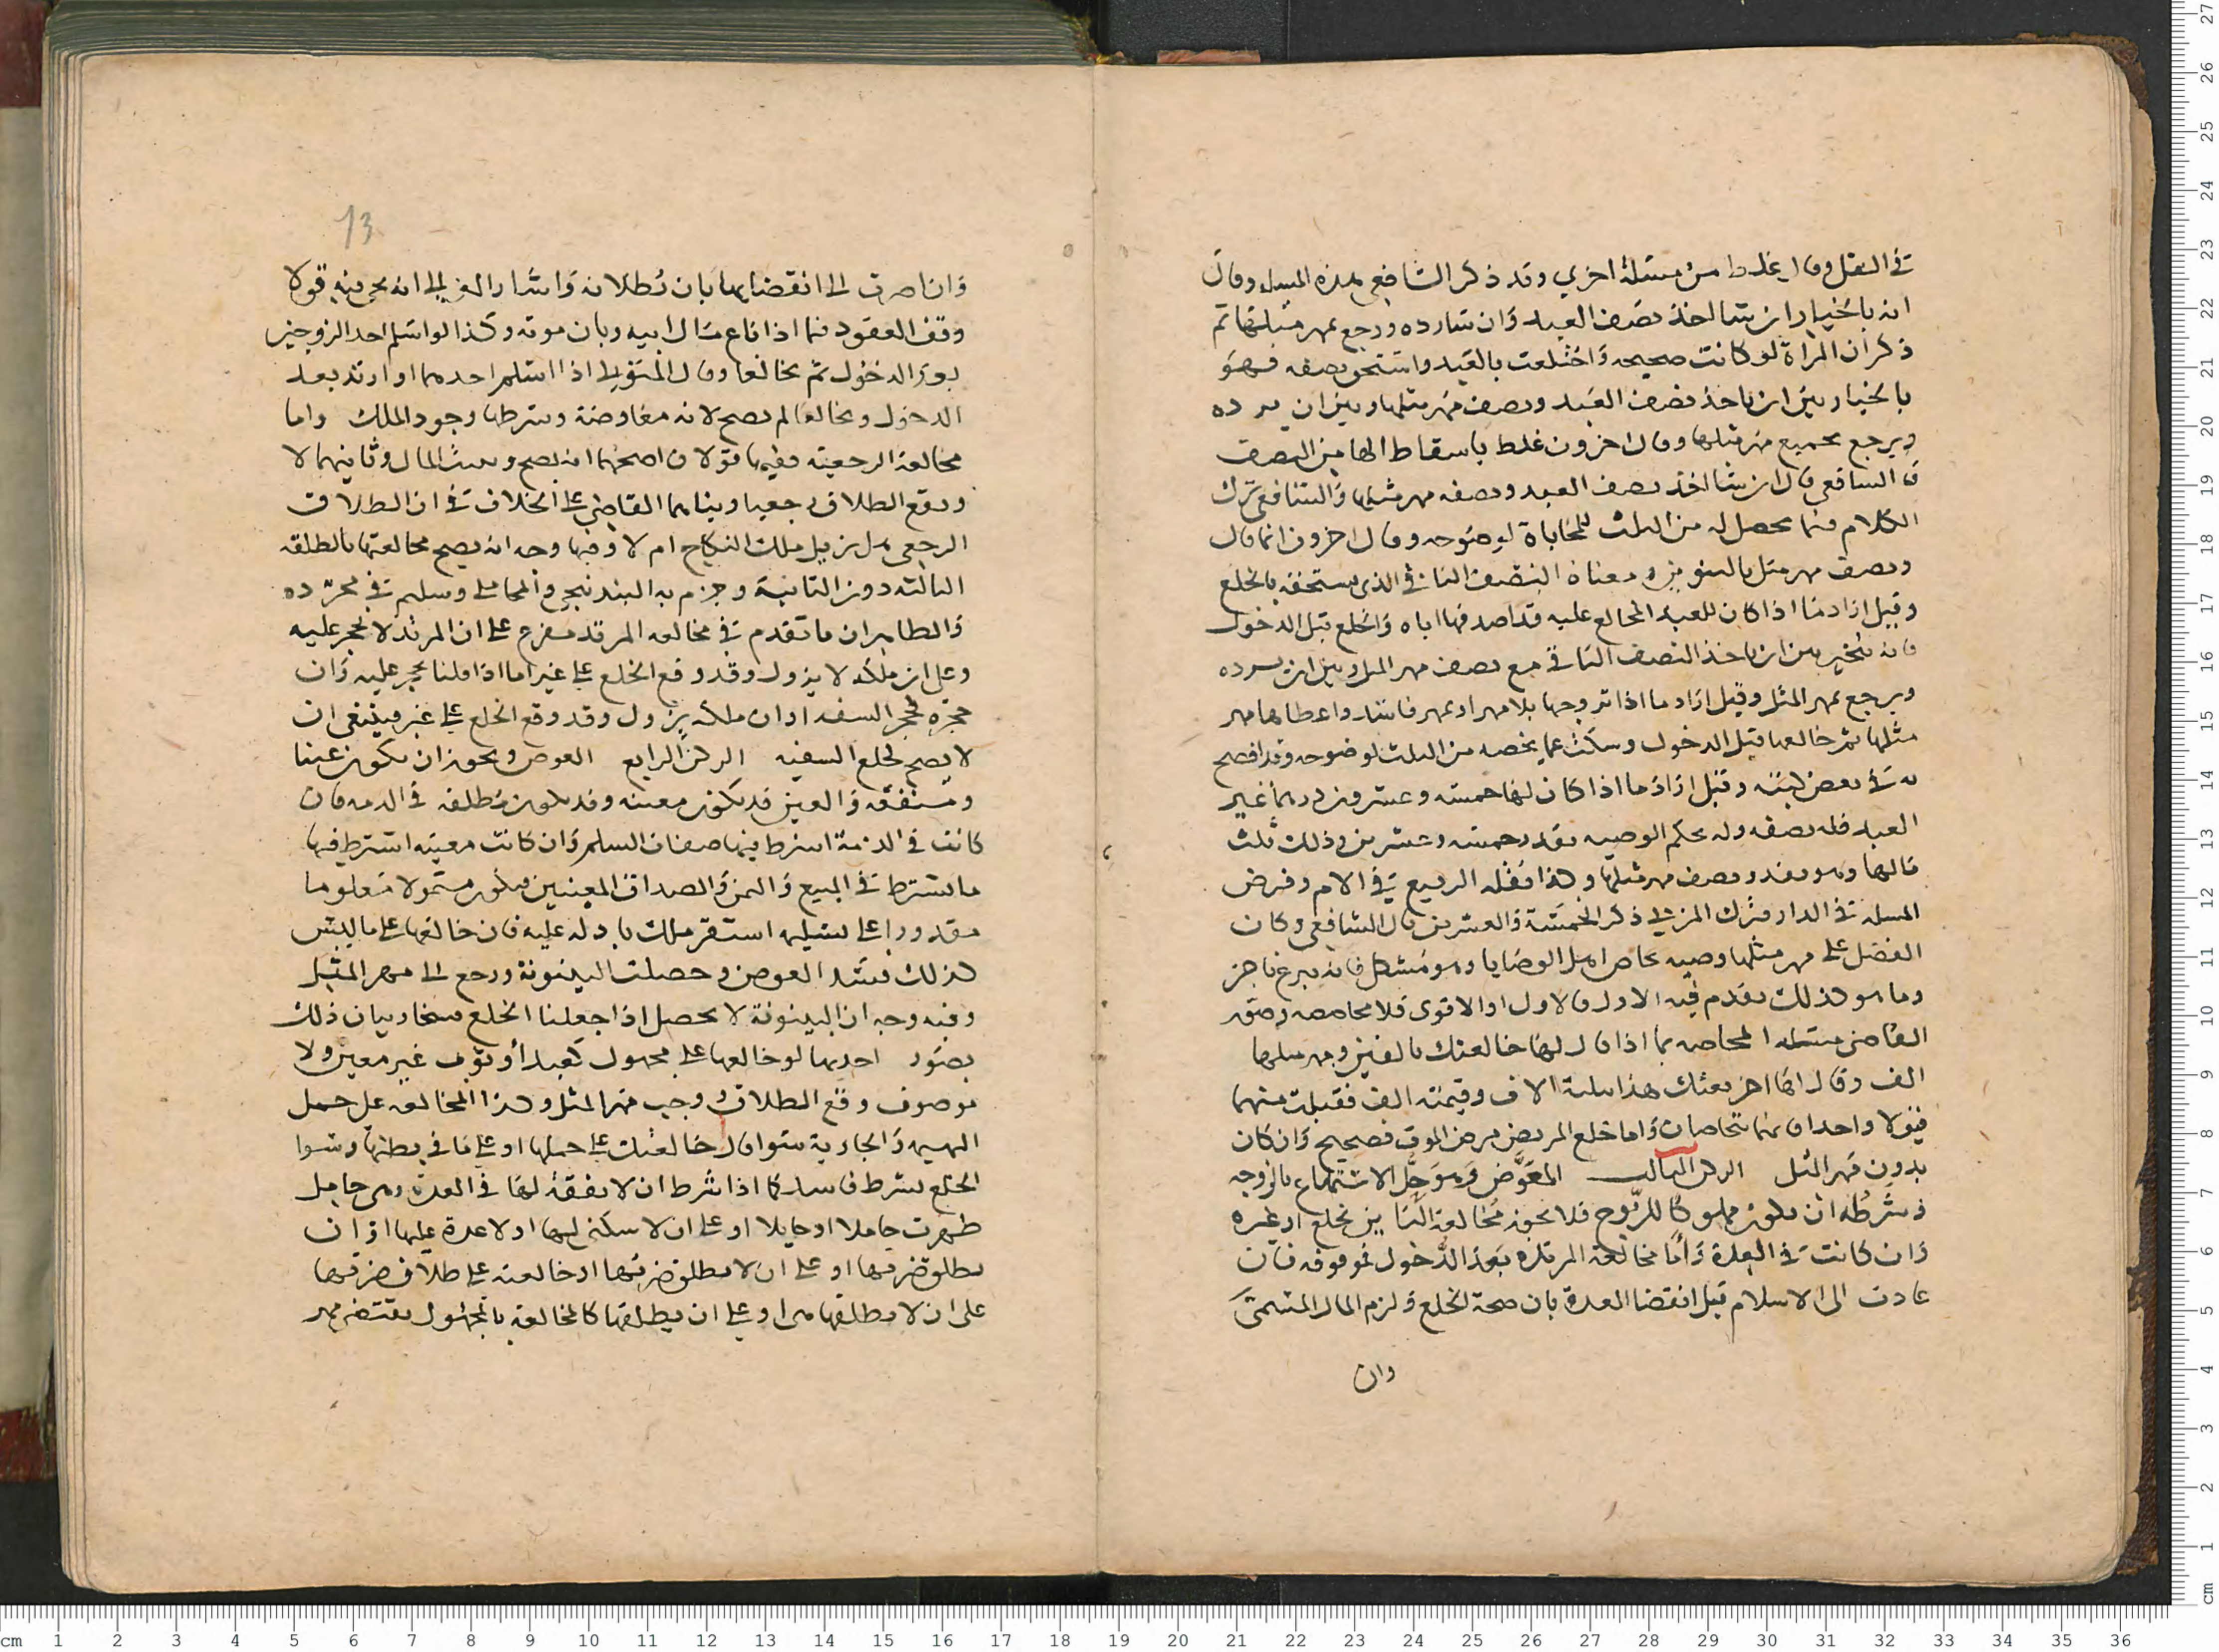 في النقل وقال غلط من مسئلة اخري وقد ذكر الشافعي هذه المسله وقال
انه بالخيار ان شا اخذ نصف العبد وان شا رده ورجع بمهر مثلها ثم
ذكر ان المراة لو كانت صحيحه واختلعت بالعبد واستحق نصفه فهو
بالخيار بين ان ياخذ نصف العبد ونصف مهر مثلها وبين ان يرده
ويرجع بجميع مهر مثلها وقال اخرون غلط باسقاط الها من النصف
فالشافعي قال ان شا اخذ نصف العبد ونصفه مهر مثلها والشافعي ترك
الكلام فيما يحصل له من الثلث للمحاباة لوضوحه وقال اخرون انما قال
ونصف مهر مثل بالتنوين ومعناه النصف الثاني الذي يستحقه بالخلع
وقيل اراد ما اذا كان للعبد المخالع عليه قد اصدقها اياه والخلع قبل الدخول
فانه يتخير بين ان ياخذ النصف الباقي مع نصف مهر المثل وبين ان يرده
ويرجع بمهر المثل وقيل اراد ما اذا تزوجها بلا مهر او بمهر فاسد واعطاها مهر
مثلها ثم خالعها قبل الدخول وسكت عما يخصه من الثلث لوضوحه وقد افصح
به في بعض كتبه وقيل اراد ما اذا كان لها خمسه وعشرون درهما غير
العبد فله نصفه وله بحكم الوصيه بقدر خمسه وعشرين وذلك ثلث
مالها وهو بقدر نصف مهر مثلها وهذا نقله الربيع في الام وفرض
المسله في الدار فترك المزني ذكر الخمسة والعشرين قال الشافعي وكان
الفضل على مهر مثلها وصيه يحاص اهل الوصايا وهو مشكل فانه تبرع ناجز
وما هو كذلك يقدم فيه الاول فالاول او الاقوى فلا محاصصه وصور
القاضي مسئلة المحاصه بما اذا قال لها خالعتك بالفين ومهر مثلها
الف وقال لها اخر بعتك هذا بثلثة الاف وقيمته الف فقبلت منهما
قبولا واحدا فانهما يتحاصان واما خلع المريض مرض الموت فصحيح وان كان
بدون مهر المثل الركن الثالث المعوض وهو حل الاستمتاع بالزوجه
وشرطه ان يكون مملوكا للزوج فلا يجوز مخالعة البائن بخلع او غيره
وان كانت في العدة واما مخالعة المرتدة بعد الدخول فموقوفه فان
عادت الى الاسلام قبل انقضا العدة بان صحة الخلع ولزم المال المسمى
وان
13
وان اصرت الى انقضائها بان بطلانه واشار الغزالي الى انه يجي فيه قولا
وقف العقود فيما اذا باع مال ابيه وبان موته وكذا لو اسلم احد الزوجين
بعد الدخول ثم تخالعا وقال المتولي اذا اسلم احدهما او ارتد بعد
الدخول وتخالعا لم يصح لانه معاوضة وشرطها وجود الملك واما
مخالعة الرجعيه ففيها قولان اصحهما انه يصح ويثبت المال وثانيهما لا
ويقع الطلاق رجعيا وبناهما القاضي على الخلاف في ان الطلاق
الرجعي هل يزيل ملك النكاح ام لا وفيها وجه انه يصح مخالعتها بالطلقه
الثالثه دون الثانية وجزم به البندنيجي والمحاملي وسليم في مجرده
والظاهر ان ما تقدم في مخالعه المرتد مفرع على ان المرتد لا يحجر عليه
وعلى ان ملكه لا يزول وقد وقع الخلع على غير اما اذا قلنا يحجر عليه وان
حجره كحجر السفه او ان ملكه يزول وقد وقع الخلع على غير فينبغي ان
لا يصح كخلع السفيه الركن الرابع العوض ويجوز ان يكون عينا
ومنفعه والعين قد يكون معينه وقد يكون مطلقه في الذمه فان
كانت في الذمة اشترط فيها صفات السلم وان كانت معينه اشترط فيها
ما يشترط في المبيع والثمن والصداق المعينين فيكون متمولا معلوما
مقدورا على تسليمه استقر ملك باذله عليه فان خالعها على ما ليس
كذلك فسد العوض وحصلت البينونة ورجع الى مهر المثل
وفيه وجه ان البينونة لا يحصل اذا جعلنا الخلع فسخا وبيان ذلك
بصور احدها لو خالعها على مجهول كعبد او ثوب غير معين ولا
موصوف وقع الطلاق ووجب مهر المثل وكذا المخالعه على حمل
البهيمه والجارية سوا قال خالعتك على حملها او على ما في بطنها وسوا
الخلع بشرط فاسد كما اذا شرط ان لا نفقة لها في العدة وهي حامل
ظهرت حاملا او حايلا او على ان لا سكنى لها او لا عدة عليها او ان
يطلق ضرتها او على ان لا يطلق ضرتها او خالعته على طلاق ضرتها
على ان لا يطلقها ابدا او على ان يطلقها كالمخالعه بالمجهول يقتضي مهر